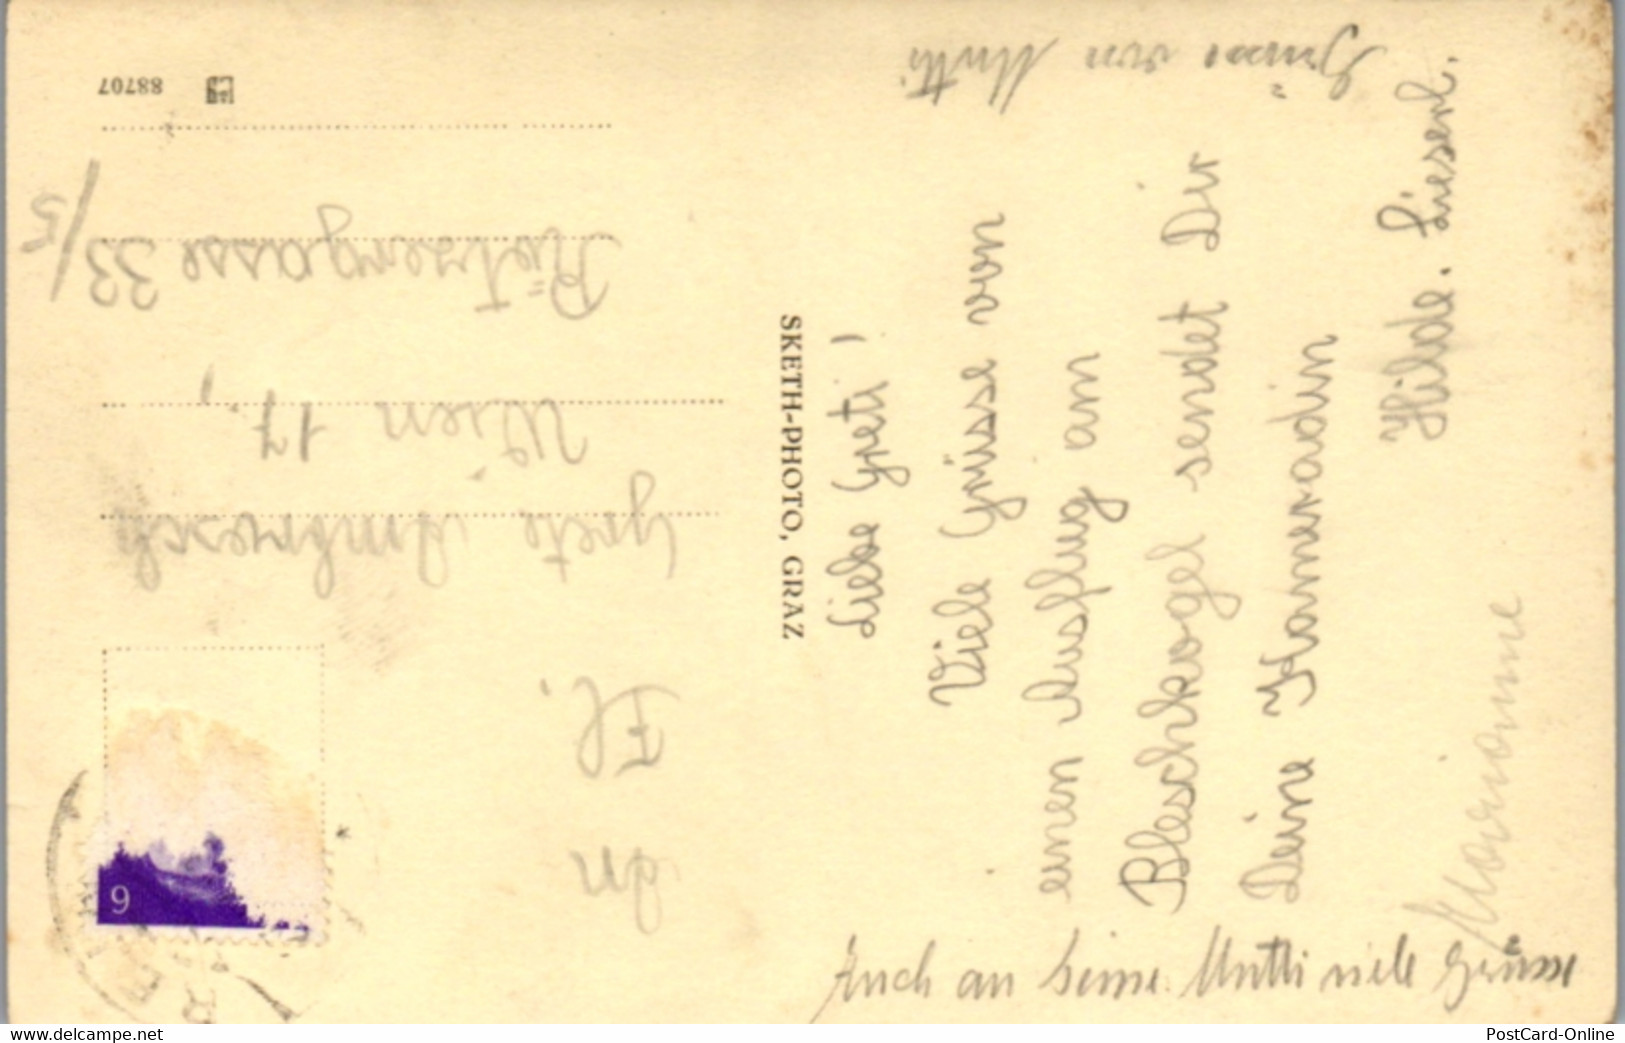 Liebe Greti!
Viele Grüsse von
einen Ausflug am
Bleschkogel sendet Dir
Deine Kameradin
Hilde. Lieserl.
Marianne
Auch an Deine Mutti viele Grüsse
Grüsse von Mutti
SKETH-PHOTO, GRAZ
An
Frl.
Grete Ambrosch
Wien 17,
Rötzergasse 33/5
88707
6
www.delcampe.net
PostCard-Online